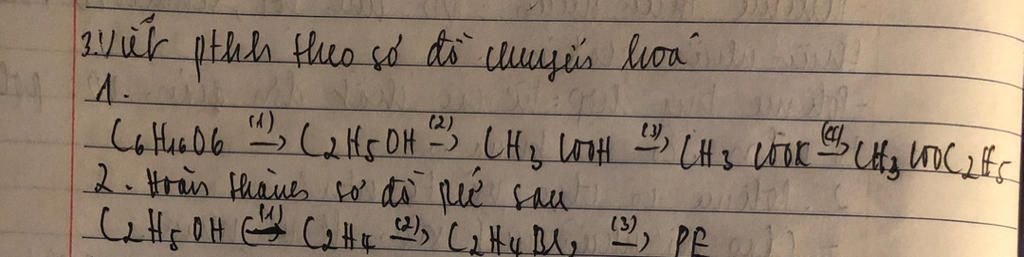 3. Viết pthh theo sơ đồ chuyển hoá
1.
C6H6O6 (1)→ C2H5OH (2)→ CH3COOH (3)→ CH3COOK (4)→ CH3COOC2H5
2. Hoàn thành sơ đồ pứ sau
C2H5OH (1)→ C2H4 (2)→ C2H4Br2 (3)→ PE